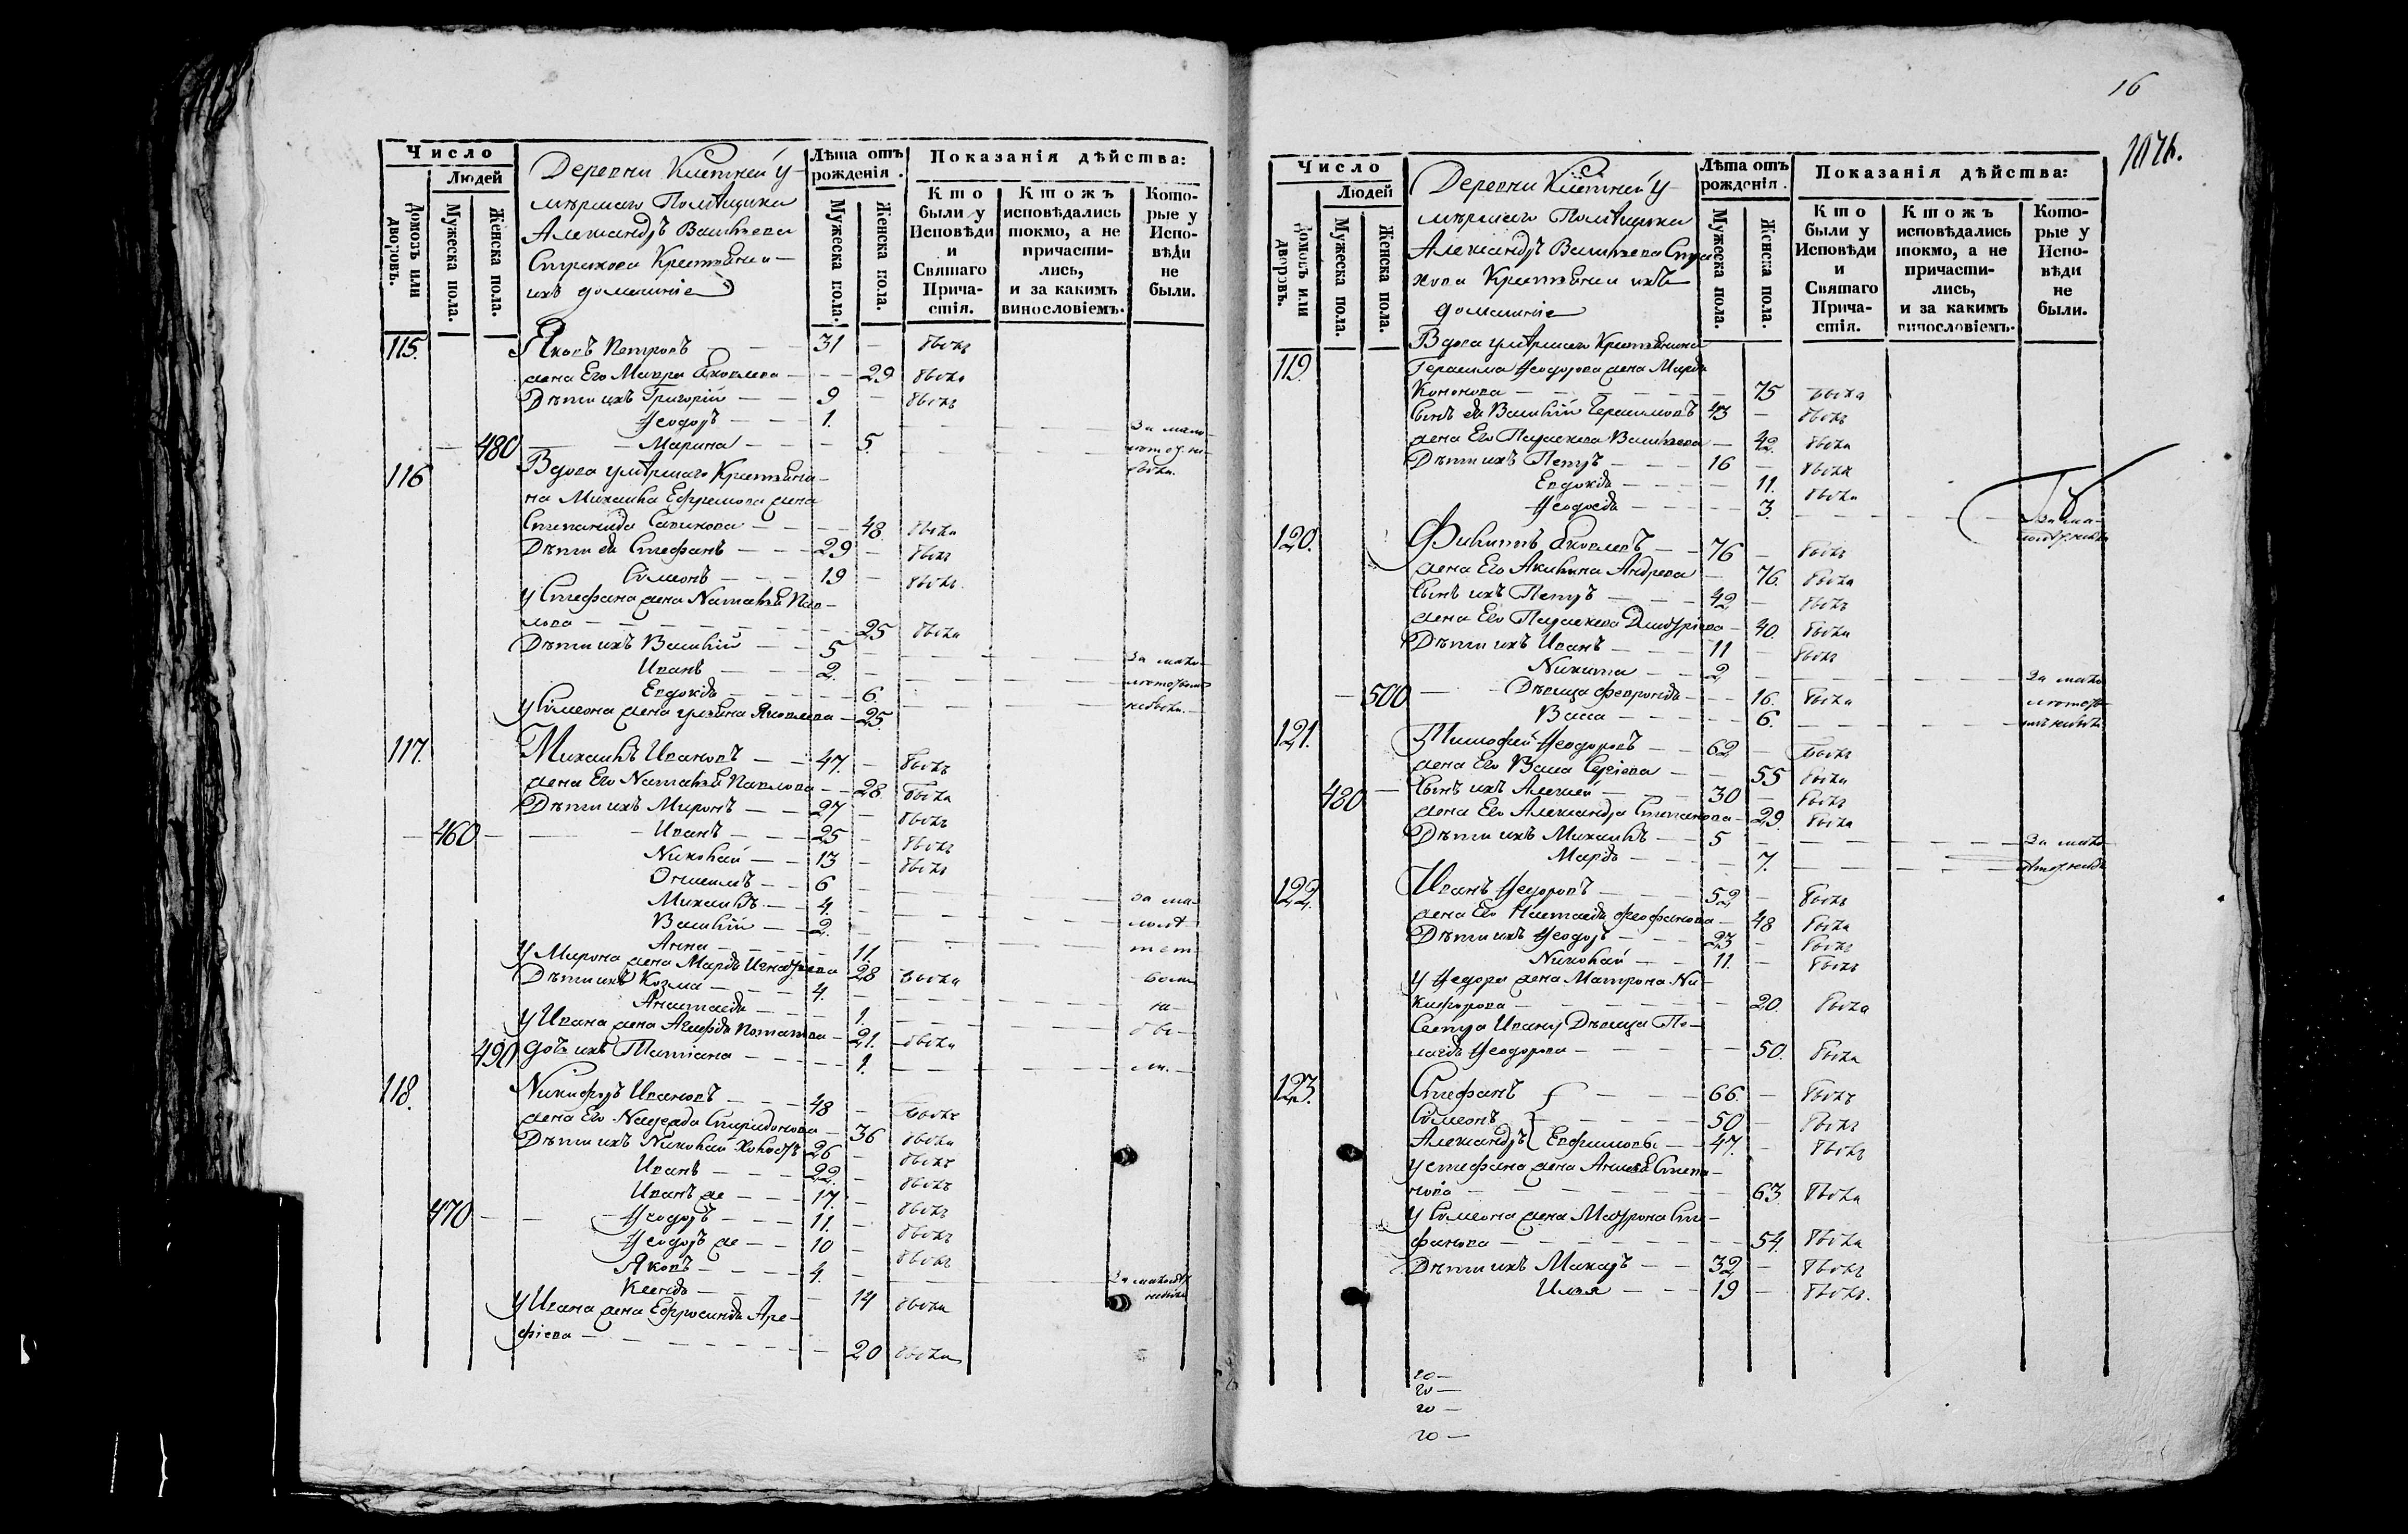 16
1076.
Число
Людей
Домовъ или дворовъ.
Мужеска пола.
Женска пола.
Деревни Клетней у-
мершаго Помѣщика
Александръ Васильева
Стрихова Крестьяне и
ихъ домашніе
Лѣта отъ рожденія.
Мужеска пола.
Женска пола.
Показанія дѣйства:
Кто были у Исповѣди и Святаго Причастія.
Ктожъ исповѣдались токмо, а не причастились, и за какимъ винословіемъ.
Которые у Исповѣди не были.
115. Яковъ Петровъ — 31 — былъ
жена Его Мавра Яковлева — 29 была
Дѣти ихъ Григорій — 9 — былъ
Ѳеодоръ — 1. за мало-
480 — Марина — 5.
116 Вдова умершаго Крестьяни-
на Михаила Ефремова жена
Степанида Савинова — 48. была
Дѣти ея Стефанъ — 29 — былъ
Симеонъ — 19 — былъ
у Стефана жена Наталья Пав-
лова — 25 была
Дѣти ихъ Василій — 5 — за мало-
Иванъ — 2.
Евдокія — 6.
у Симеона жена Ульяна Яковлева — 25.
117. Михаилъ Ивановъ — 47. — былъ
жена Его Наталья Павлова — 28 была
Дѣти ихъ Миронъ — 27 — былъ
460 — Иванъ — 25 — былъ
Николай — 13 — былъ
6 —
Михаилъ — 4. за ма-
Василій — 2.
Анна — 11.
у Мирона жена Марѳа — 28 была
Дѣти ихъ Козма — 4.
Анастасія — 1. на-
у Ивана жена Агафія Потапова — 21. была
490 дочь ихъ Татіана — 1.
118. Никифоръ Ивановъ — 48 — былъ
жена Его Надежда Спиридонова — 36 была
Дѣти ихъ Николай холостъ 26 — былъ
Иванъ — 22. — былъ
Иванъ же — 17. — былъ
470 — Ѳеодоръ — 11. — былъ
Ѳеодоръ же — 10 — былъ
Яковъ — 4.
Ксенія — 14 была
у Ивана жена Ефросинія Аре-
фіева — 20 была
Число
Людей
Домовъ или дворовъ.
Мужеска пола.
Женска пола.
Деревни Клетней у-
мершаго Помѣщика
Александръ Васильева Стри
хова Крестьяне и ихъ
домашніе
Лѣта отъ рожденія.
Мужеска пола.
Женска пола.
Показанія дѣйства:
Кто были у Исповѣди и Святаго Причастія.
Ктожъ исповѣдались токмо, а не причастились, и за какимъ винословіемъ.
Которые у Исповѣди не были.
Вдова умершаго Крестьянина
119. Герасима Ѳеодорова жена Марѳа
Кононова — 75 была
Сынъ ея Василій Герасимовъ 43 — былъ
жена Его Параскева Васильева — 42. была
Дѣти ихъ Петръ — 16 — былъ
Евдокія — 11. была
Ѳеодосія — 3. За ма-
120. Филиппъ Яковлевъ — 76 — былъ
жена Его Акилина Андреева — 76. была
Сынъ ихъ Петръ — 42 — былъ
жена Его Параскева Дмитріева — 40. была
Дѣти ихъ Иванъ — 11 — былъ
Никита — 2 — За мало
500 — Дѣвица Февронія — 16. была
Васса — 6.
121. Тимофей Ѳеодоровъ — 62 — былъ
жена Его Васса Сергіева — 55 была
480 — Сынъ ихъ Алексей — 30 — былъ
жена Его Александра Степанова — 29. была
Дѣти ихъ Михаилъ — 5 — За мало
Марѳа — 7.
122. Иванъ Ѳедоровъ — 52 — былъ
жена Его Настасія Феофанова — 48 была
Дѣти ихъ Ѳеодоръ — 23 — былъ
Николай — 11. — былъ
у Ѳедора жена Матрона Ни-
кифорова — 20. была
Сестра Ивану Дѣвица Пе-
лагія Ѳеодорова — 50. была
123. Стефанъ — 66. — былъ
Симеонъ — 50 — былъ
Александръ Евфимовы — 47. — былъ
у Стефана жена Анисья Степа-
нова — 63 была
у Симеона жена Матрона Сте-
фанова — 54. была
Дѣти ихъ Макаръ — 32 — былъ
Илья — 19 — былъ.
20 —
20 —
20 —
20 —